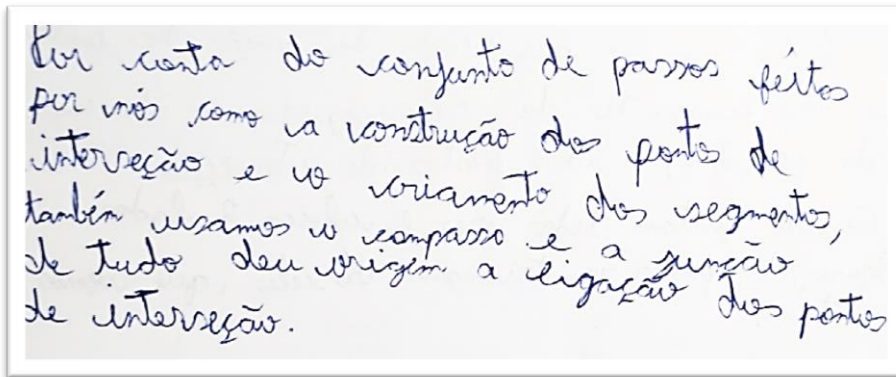 Por conta do conjunto de passos feitos
por nós como a construção dos pontos de
interseção e o criamento dos segmentos,
também usamos o compasso e a junção
de tudo deu origem a ligação dos pontos
de interseção.